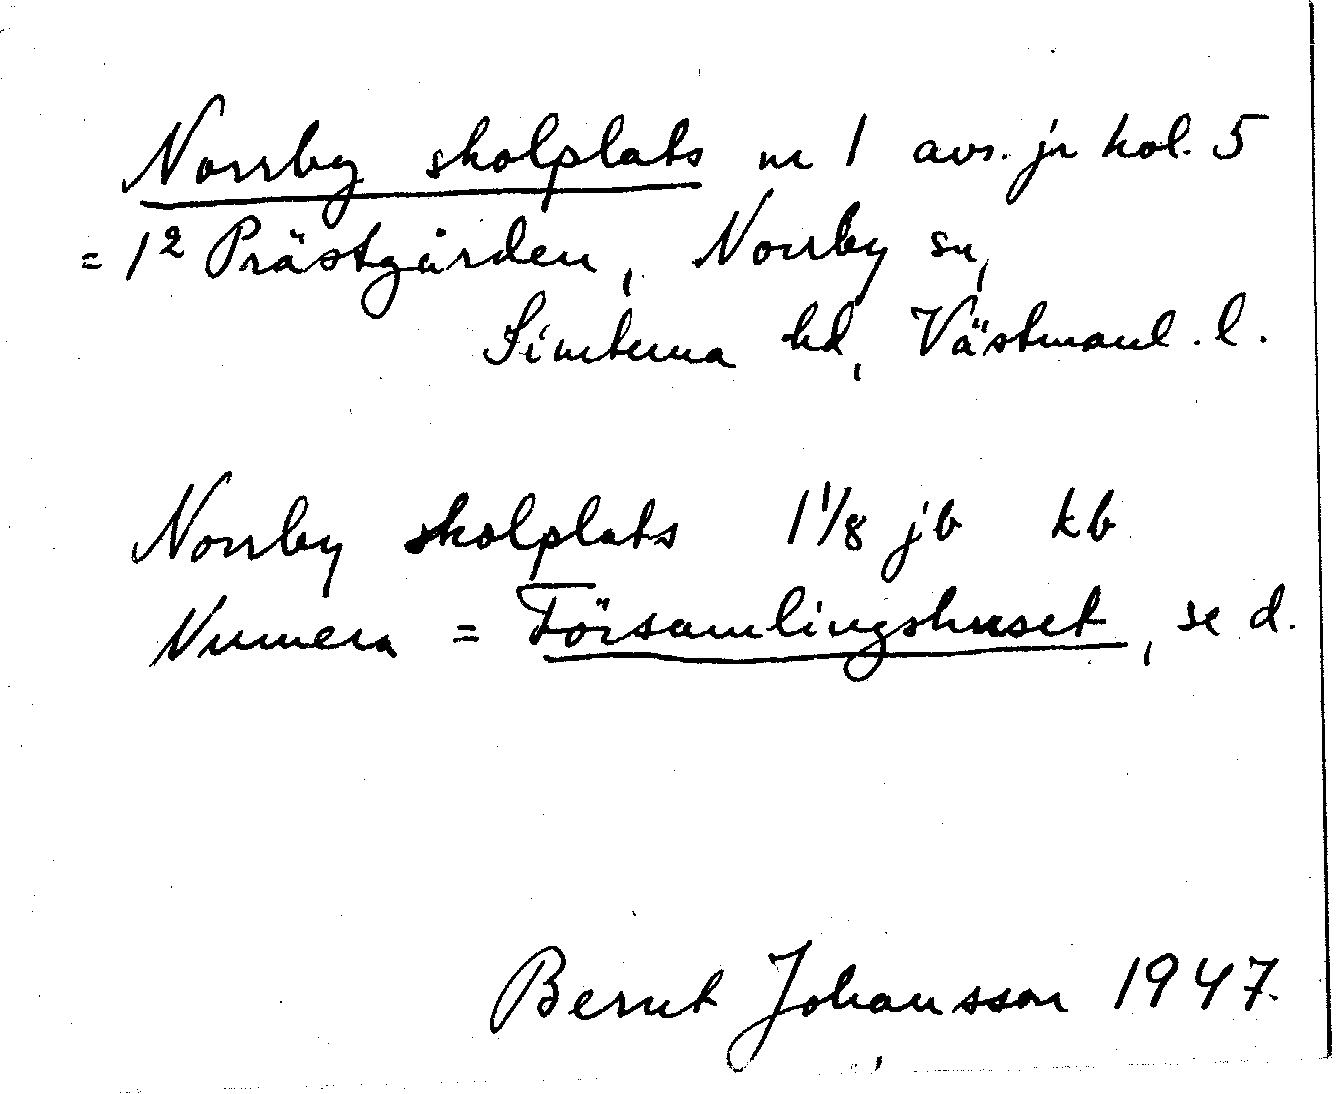 Norrby skolplats nr 1 avs. jr kol. 5
= 1² Prästgården, Norrby sn,
Simtuna hd, Västmanl. l.
Norrby skolplats 1 1/8 jb kb
Numera = Församlingshuset, se d.
Bernt Johansson 1947.